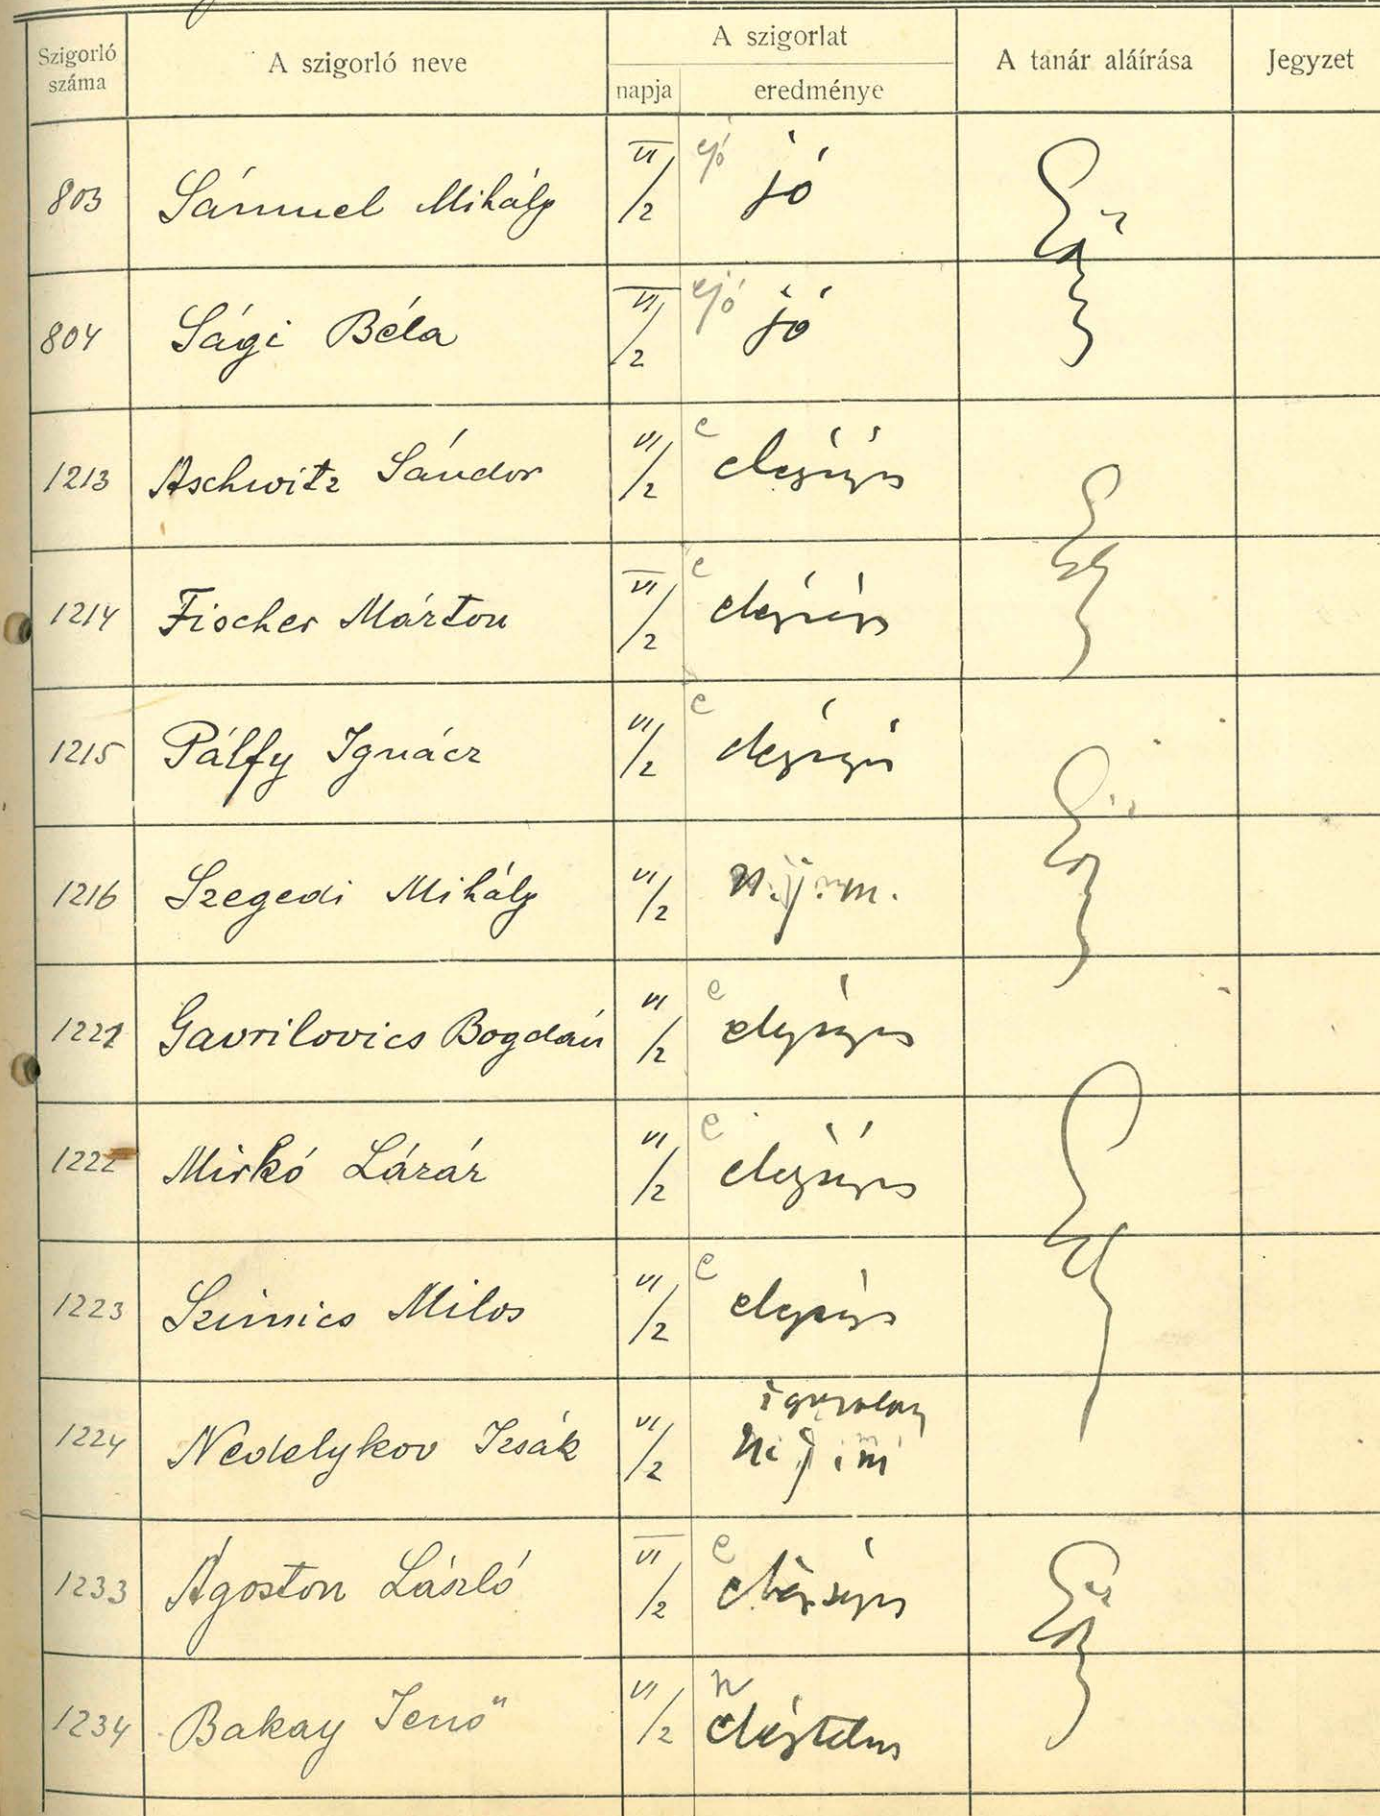 Szigorló száma A szigorló neve A szigorlat A tanár aláírása Jegyzet
napja eredménye
803 Sámuel Mihály VI/2 ejó jó
804 Sági Béla VI/2 ejó jó
1213 Aschwitz Sándor VI/2 e elégséges
1214 Fischer Márton VI/2 e elégséges
1215 Pálfy Ignácz VI/2 e elégséges
1216 Szegedi Mihály VI/2 n.j.m.
1221 Gavrilovics Bogdán VI/2 e elégséges
1222 Mirkó Lázár VI/2 e elégséges
1223 Szimics Milos VI/2 e elégséges
1224 Nedelykov Izsák VI/2
1233 Ágoston László VI/2 e elégséges
1234 Bakay Jenő VI/2 n elégtelen